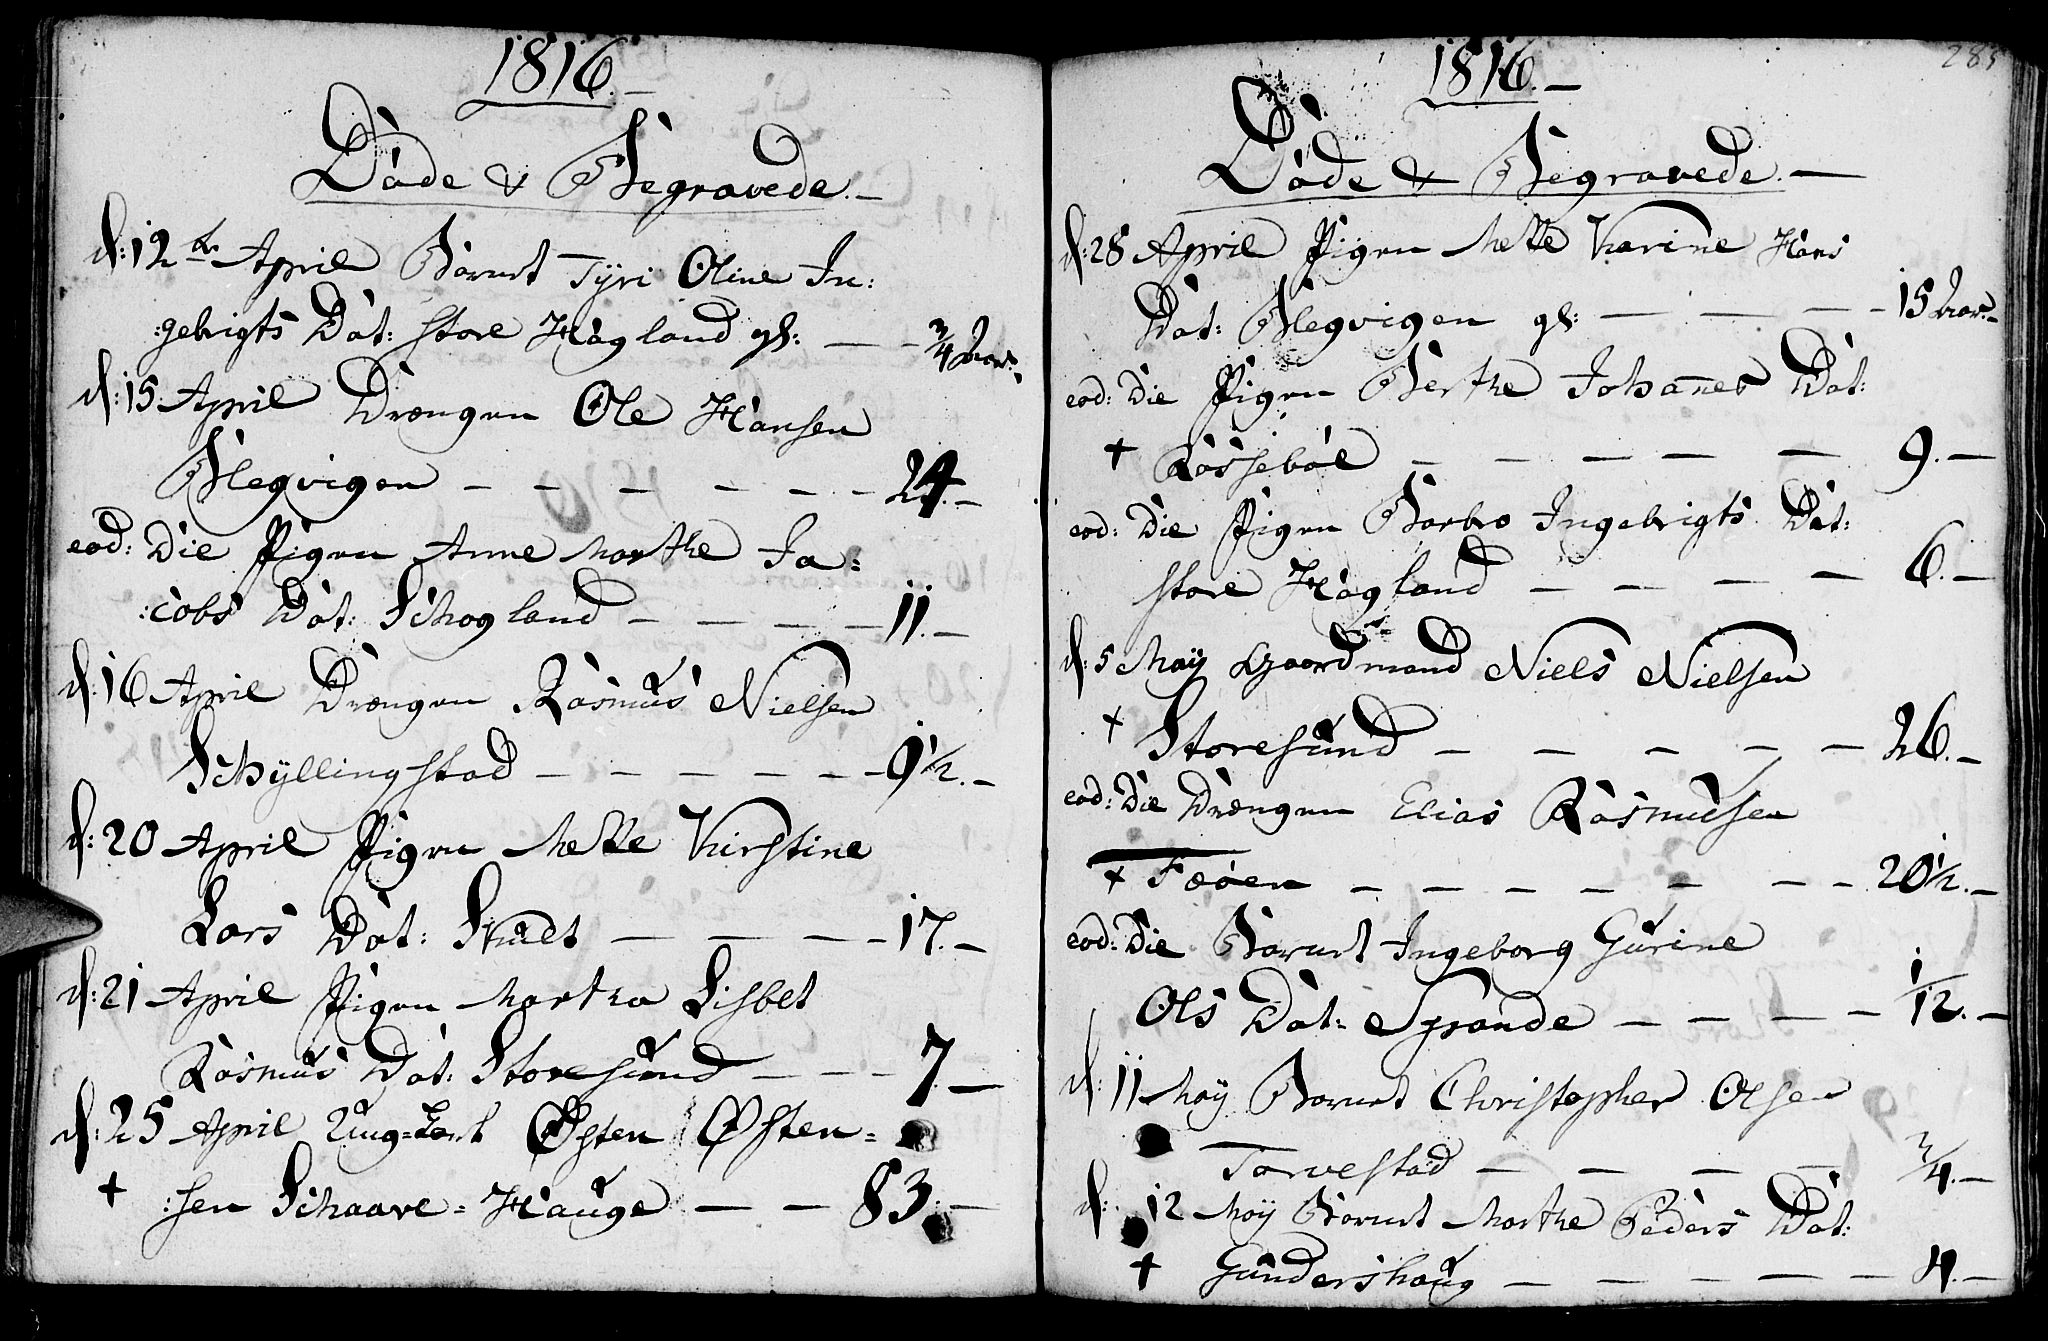 1816.
Döde & Begravede.
d: 12te April Barnet Tyri Oline In:
:gebrigts Dat: store Hagland gl: — — 3/4 Aar.
d: 15. April Drengen Ole Hansen
Blegvigen — — — — — — 24.
eod: Die Pigen Anne Marthe Ja:
:cobs Dat: Schogland — — — — 11.
d: 16 April Drengen Rasmus Nielsen
Schyllingstad — — — — — — 9 1/2.
d: 20 April Pigen Mette Kirstine
Lars Dat: Skudt — — — — 17.
d: 21 April Pigen Martha Lisbet
Rasmus Dat: Storesund — — — 7.
d: 25 April Ung=Karl Østen Østen=
+ :sen Schaare=Hauge — — 83.
285
1816.
Döde & Begravede.
d: 28 April Pigen Mette Karine Hans
Dat: Blegvigen gl: — — — — 15 Aar.
eod: Die Pigen Berthe Johannes Dat:
+ Røssebøe — — — — — 9.
eod: Die Pigen Barbro Ingebrigts Dat:
store Hagland — — — — 6.
d: 5 May Gaardmand Niels Nielsen
+ Storesund — — — — — 26.
eod: Die Drengen Elias Rasmusen
+ Fæøen — — — — — — — 20 1/2.
eod: Die Barnet Ingeborg Gurine
Ols Dat: Spande — — — — 1/12.
d: 11 May Barnet Christopher Olsen
Torvestad — — — — 3/4.
d: 12 May Barnet Marthe Peders Dat:
+ Gundershaug — — — — — 4.